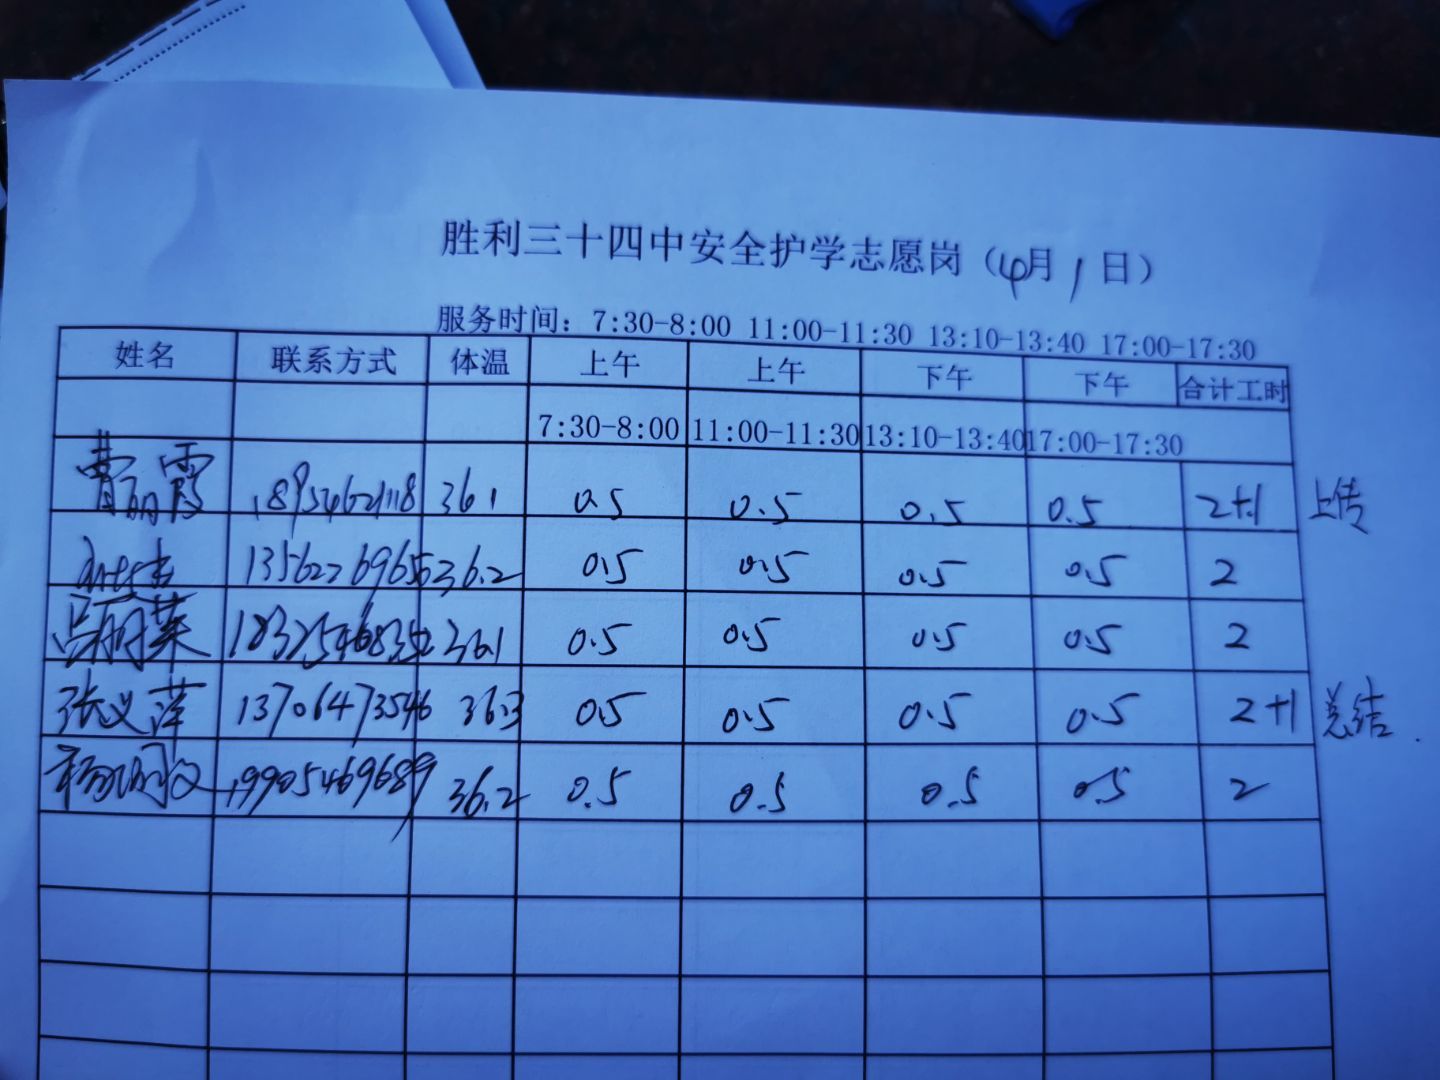 胜利三十四中安全护学志愿岗（4月1日）
服务时间：7:30-8:00 11:00-11:30 13:10-13:40 17:00-17:30
姓名 联系方式 体温 上午 上午 下午 下午 合计工时
7:30-8:00 11:00-11:30 13:10-13:40 17:00-17:30
曹丽霞 18954621118 36.1 0.5 0.5 0.5 0.5 2+1 上传
13562276965 36.2 0.5 0.5 0.5 0.5 2
36.1 0.5 0.5 0.5 0.5 2
张义萍 13706473546 36.3 0.5 0.5 0.5 0.5 2+1 总结
19905469689 36.2 0.5 0.5 0.5 0.5 2